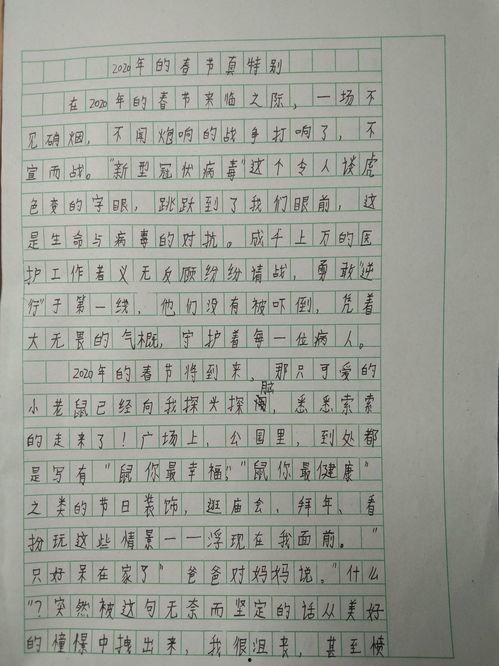 2020年的春节真特别
在2020年的春节来临之际，一场不
见硝烟，不闻炮响的战争打响了，不
宣而战。"新型冠状病毒"这个令人谈虎
色变的字眼，跳跃到了我们眼前，这
是生命与病毒的对抗。成千上万的医
护工作者义无反顾纷纷请战，勇敢"逆
行"于第一线，他们没有被吓倒，凭着
大无畏的气概，守护着每一位病人。
2020年的春节将到来，那只可爱的
小老鼠已经向我探头探脑，悉悉索索
的走来了！广场上，公园里，到处都
是写有"鼠你最幸福""鼠你最健康"
之类的节日装饰，逛庙会、拜年、看
扮玩这些情景一一浮现在我面前。"
只好呆在家了"爸爸对妈妈说。"什么
"？突然被这句无奈而坚定的话从美好
的憧憬中拽出来，我很沮丧，甚至愤